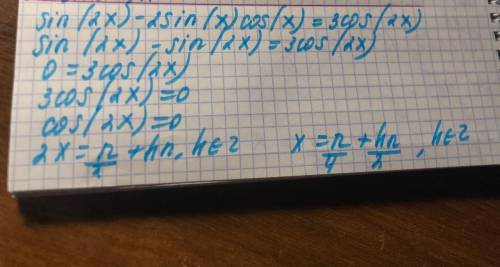 sin(2x)-2sin(x)cos(x)=3cos(2x)
sin(2x)-sin(2x)=3cos(2x)
0=3cos(2x)
3cos(2x)=0
cos(2x)=0
2x=π/2+kπ, k∈Z x=π/4+kπ/2, k∈Z